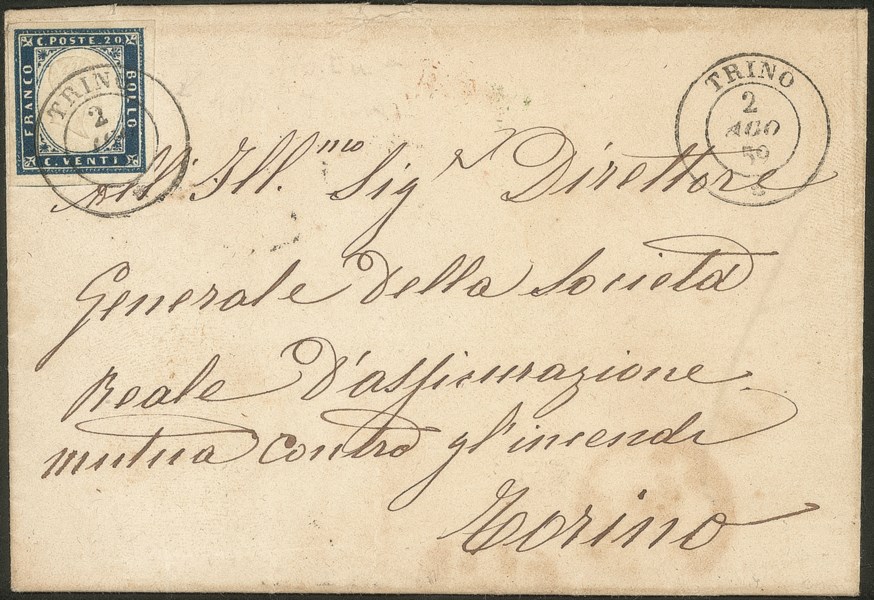 C. POSTE 20
FRANCO
BOLLO
C. VENTI
TRINO
2
TRINO
2
AGO
56
All' Ill.mo Sigr Direttore
Generale della Società
Reale d'assicurazione
mutua contro gl'incendi
Torino